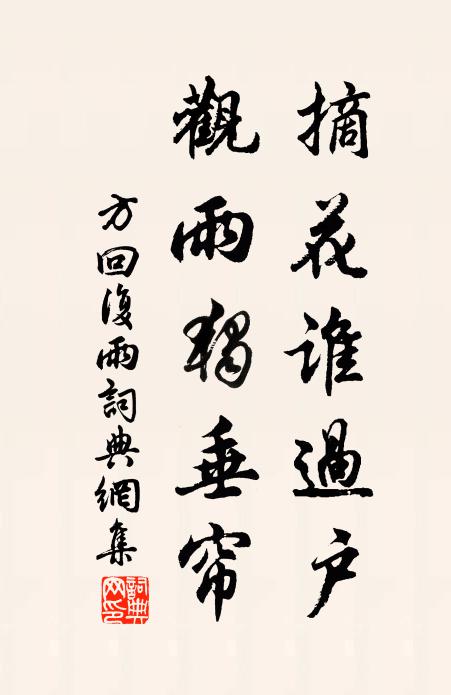 摘花誰過户
觀雨獨垂帘
方回復雨詞典網集
詞典網印